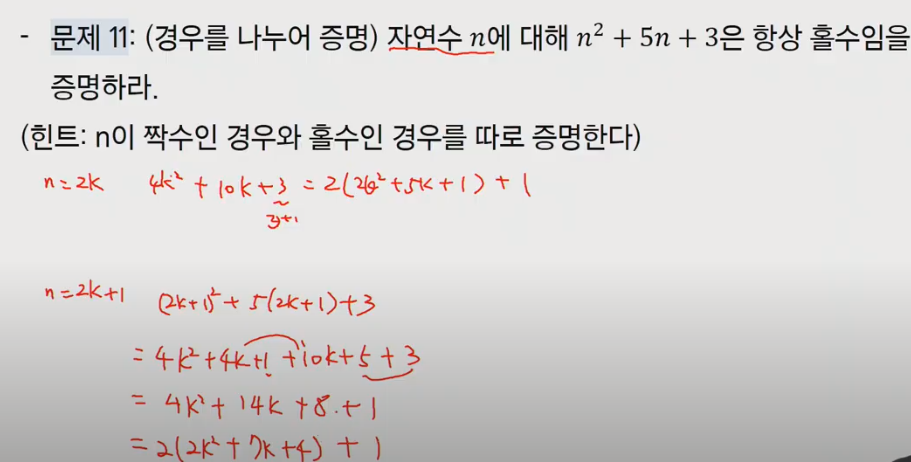 - 문제 11: (경우를 나누어 증명) 자연수 n에 대해 n² + 5n + 3은 항상 홀수임을
증명하라.
(힌트: n이 짝수인 경우와 홀수인 경우를 따로 증명한다)
n=2k 4k² + 10k+3 = 2(2k²+5k+1) + 1
n=2k+1 (2k+1)² + 5(2k+1)+3
= 4k²+4k+1 +10k+5+3
= 4k²+ 14k +8 +1
= 2(2k²+7k+4) + 1